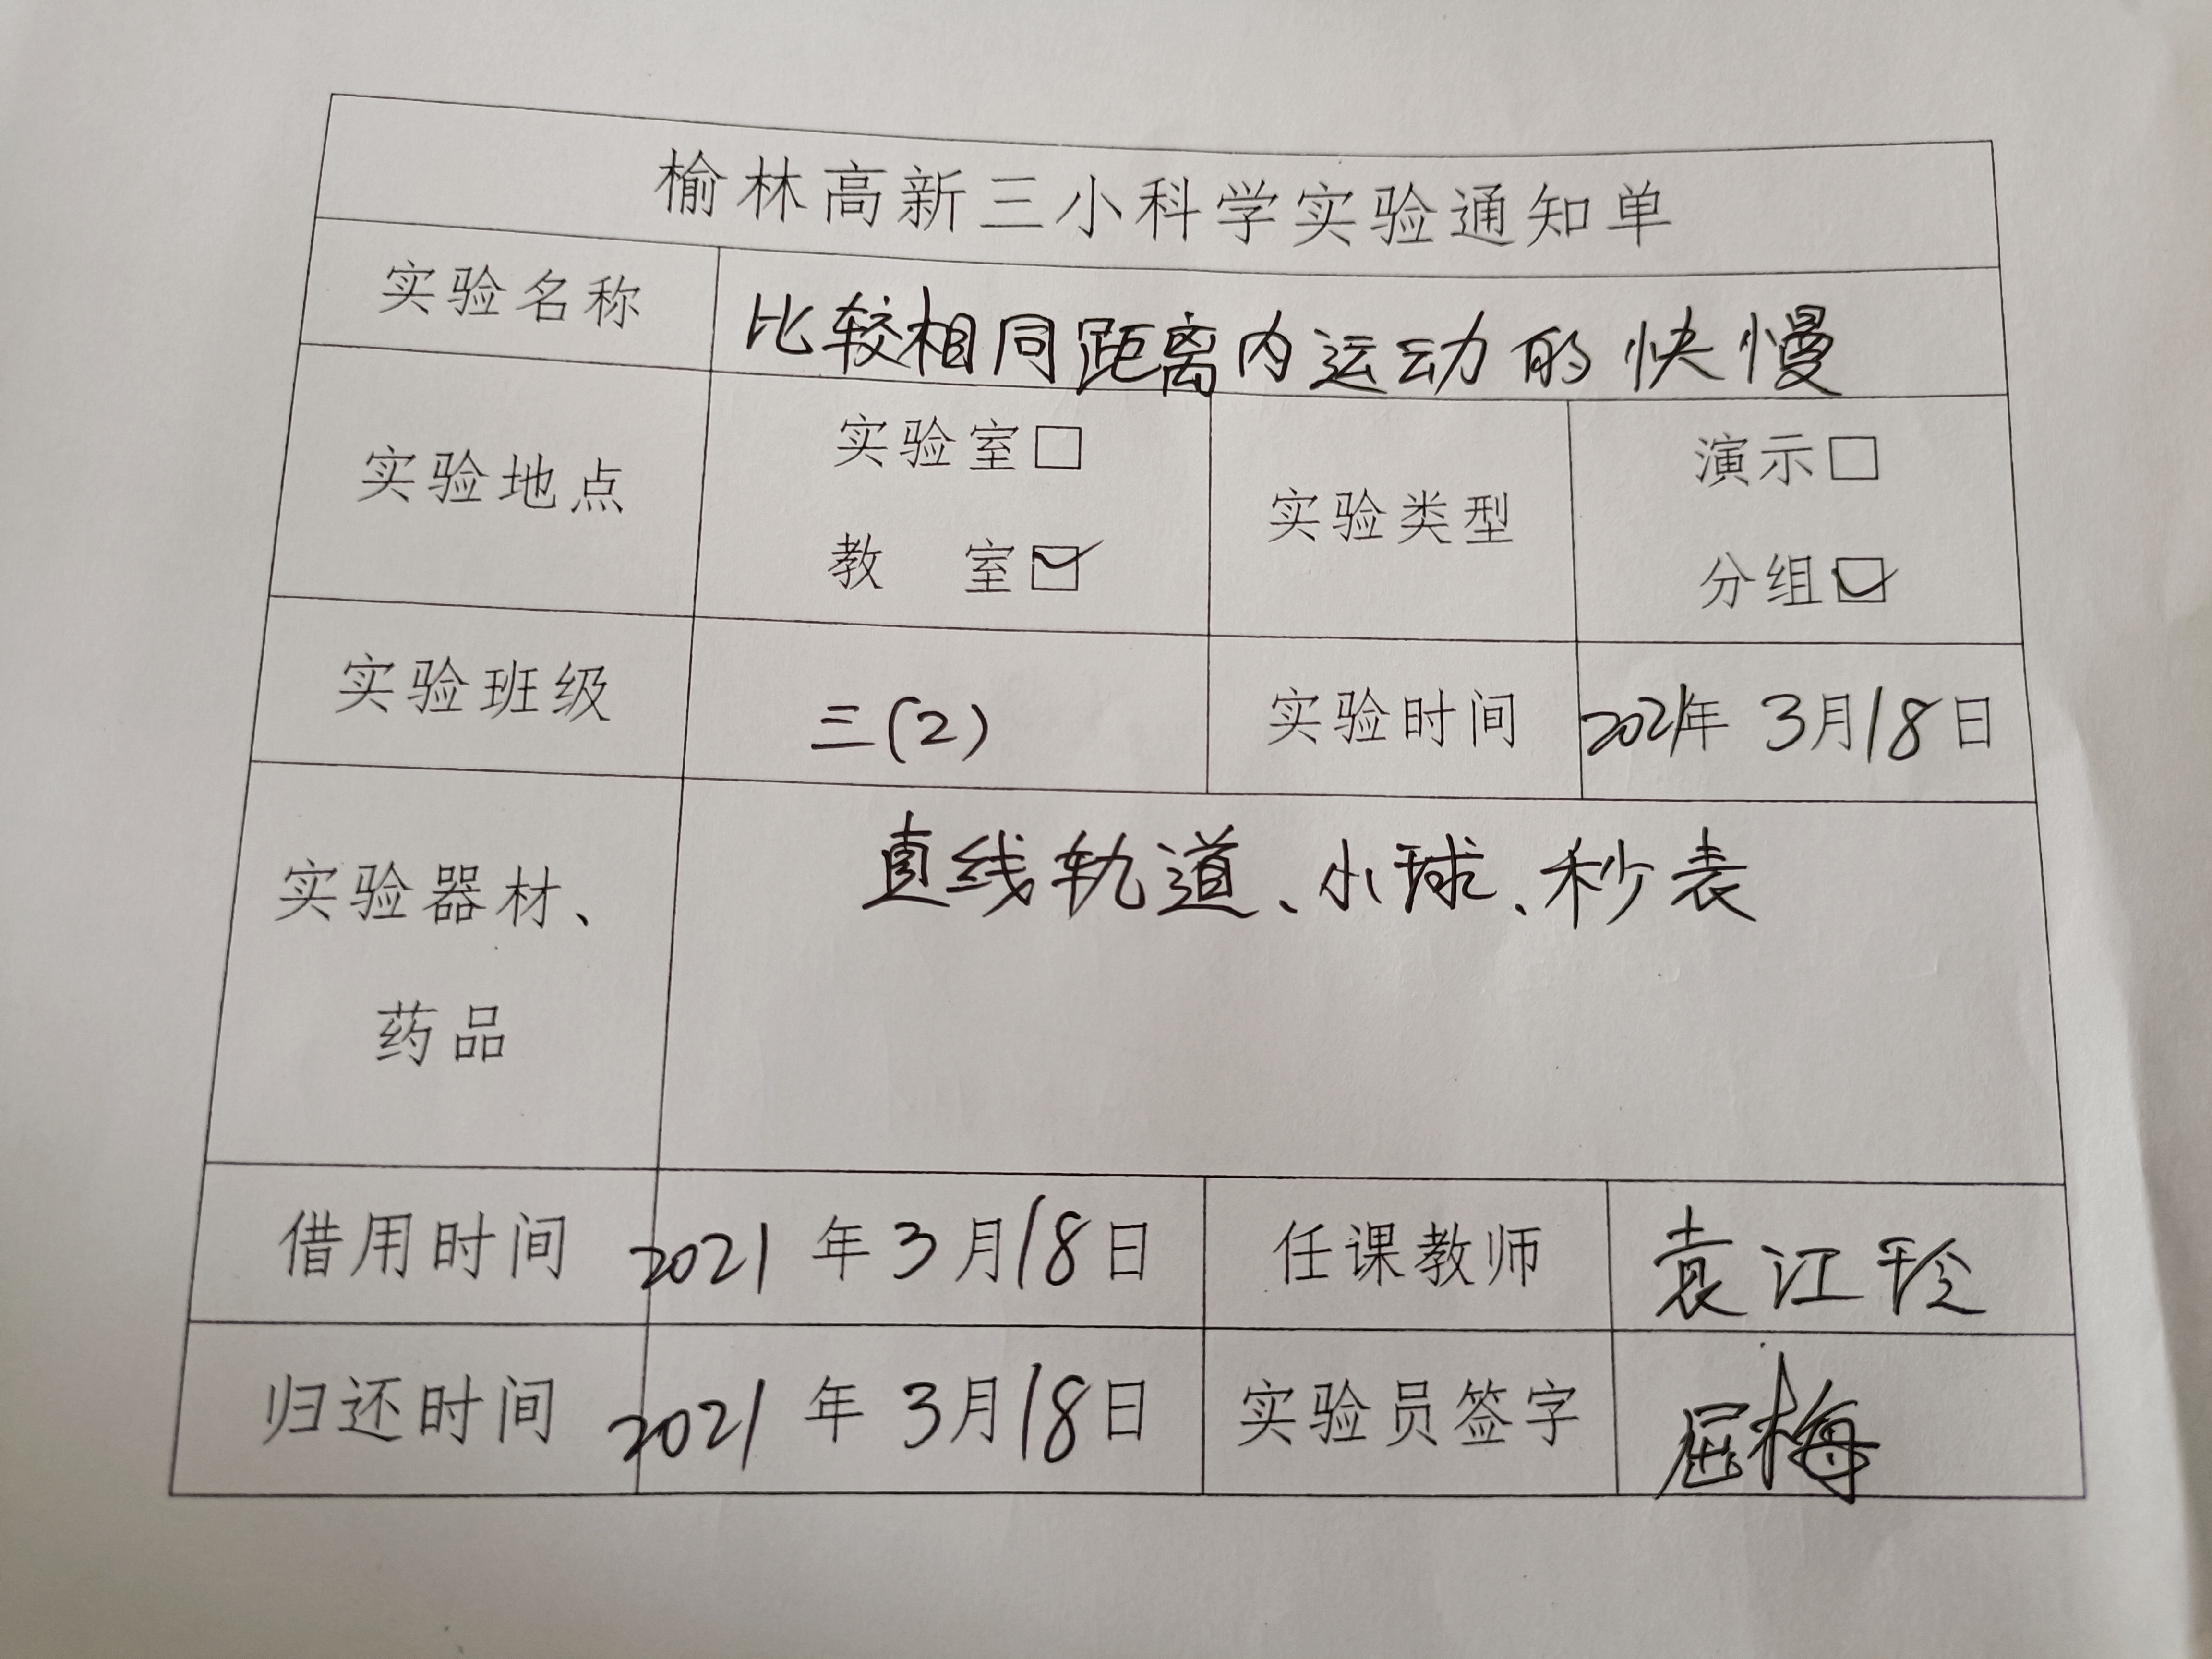 榆林高新三小科学实验通知单
实验名称 比较相同距离内运动的快慢
实验地点 实验室□ 教 室☑ 实验类型 演示□ 分组☑
实验班级 三(2) 实验时间 2021年3月18日
实验器材、药品 直线轨道、小球、秒表
借用时间 2021年3月18日 任课教师 袁江玲
归还时间 2021年3月18日 实验员签字 屈梅